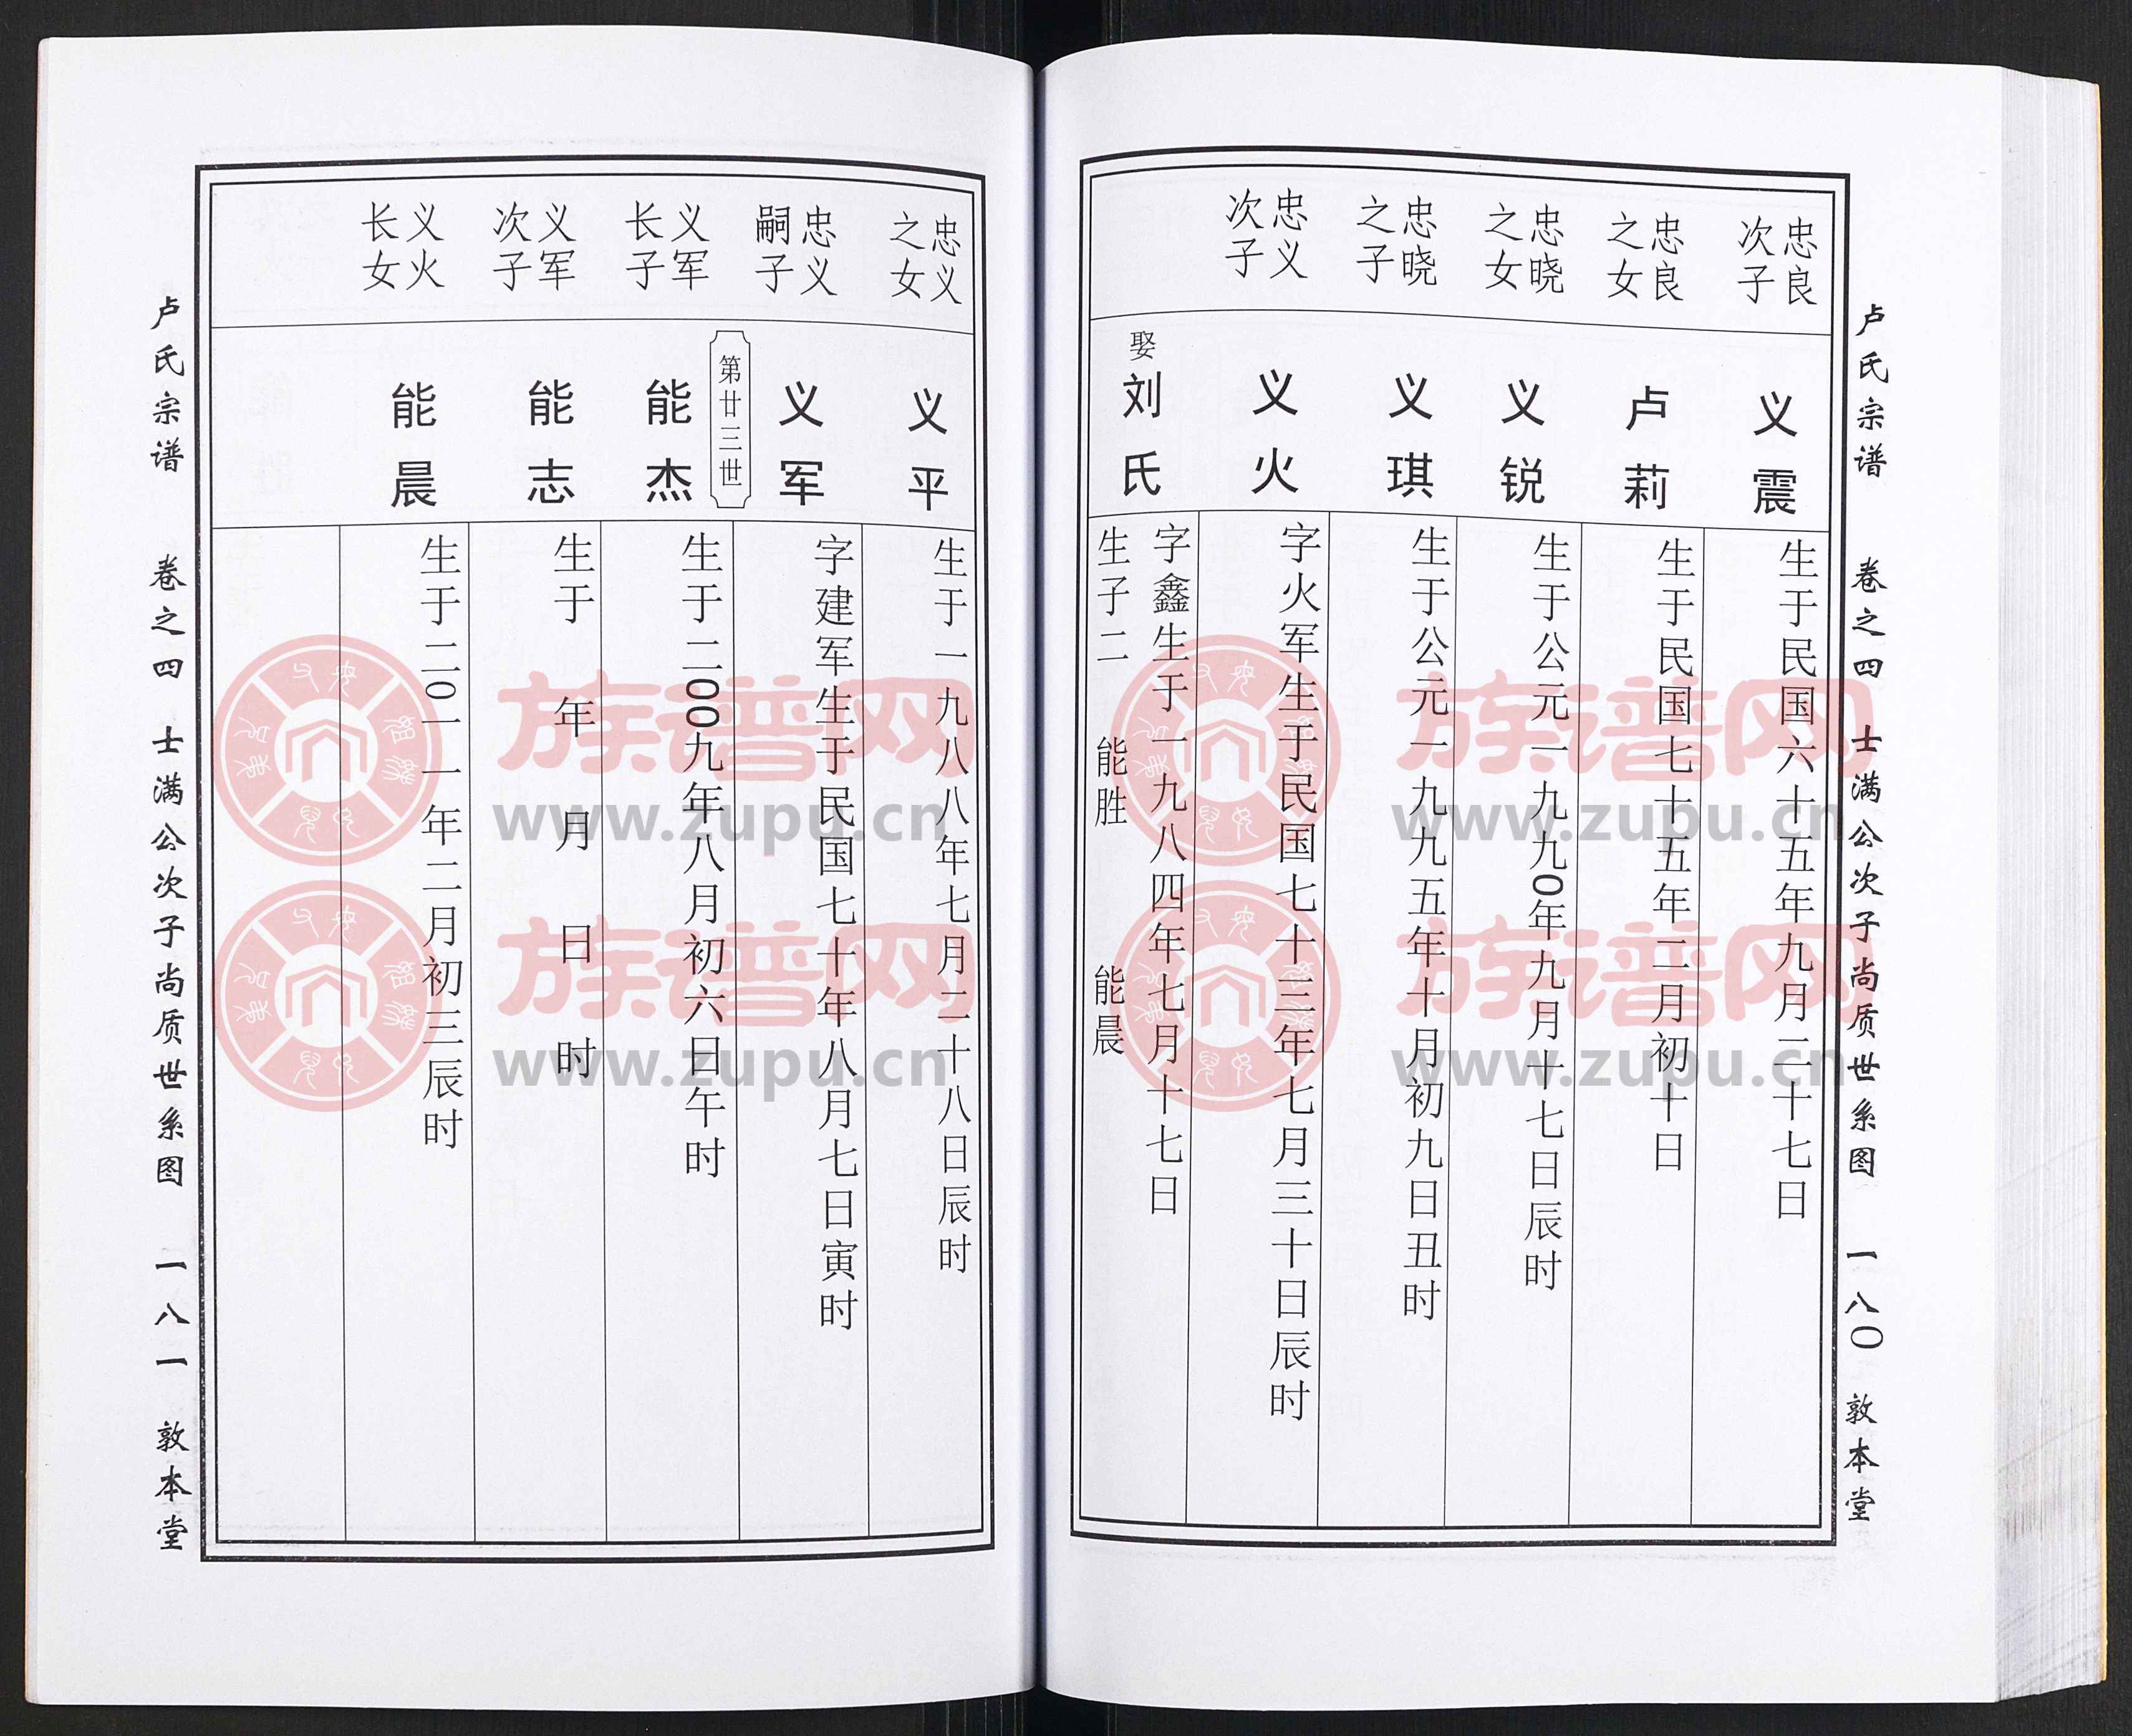 卢氏宗谱 卷之四 士满公次子尚质世系图 一八〇 敦本堂
忠良
次子
义震
生于民国六十五年九月二十七日
忠良
之女
卢莉
生于民国七十五年二月初十日
忠晓
之女
义锐
生于公元一九九0年九月十七日辰时
忠晓
之子
义琪
生于公元一九九五年十月初九日丑时
忠义
次子
义火
字火军生于民国七十三年七月三十日辰时
娶刘氏
字鑫生于一九八四年七月十七日
生子二 能胜 能晨
忠义
之女
义平
生于一九八八年七月二十八日辰时
忠义
嗣子
义军
字建军生于民国七十年八月七日寅时
第廿三世
义军
长子
能杰
生于二00九年八月初六日午时
义军
次子
能志
生于 年 月 日 时
义火
长女
能晨
生于二0一一年二月初三辰时
卢氏宗谱 卷之四 士满公次子尚质世系图 一八一 敦本堂
族谱网
www.zupu.cn
族谱网
www.zupu.cn
族谱网
www.zupu.cn
族谱网
www.zupu.cn